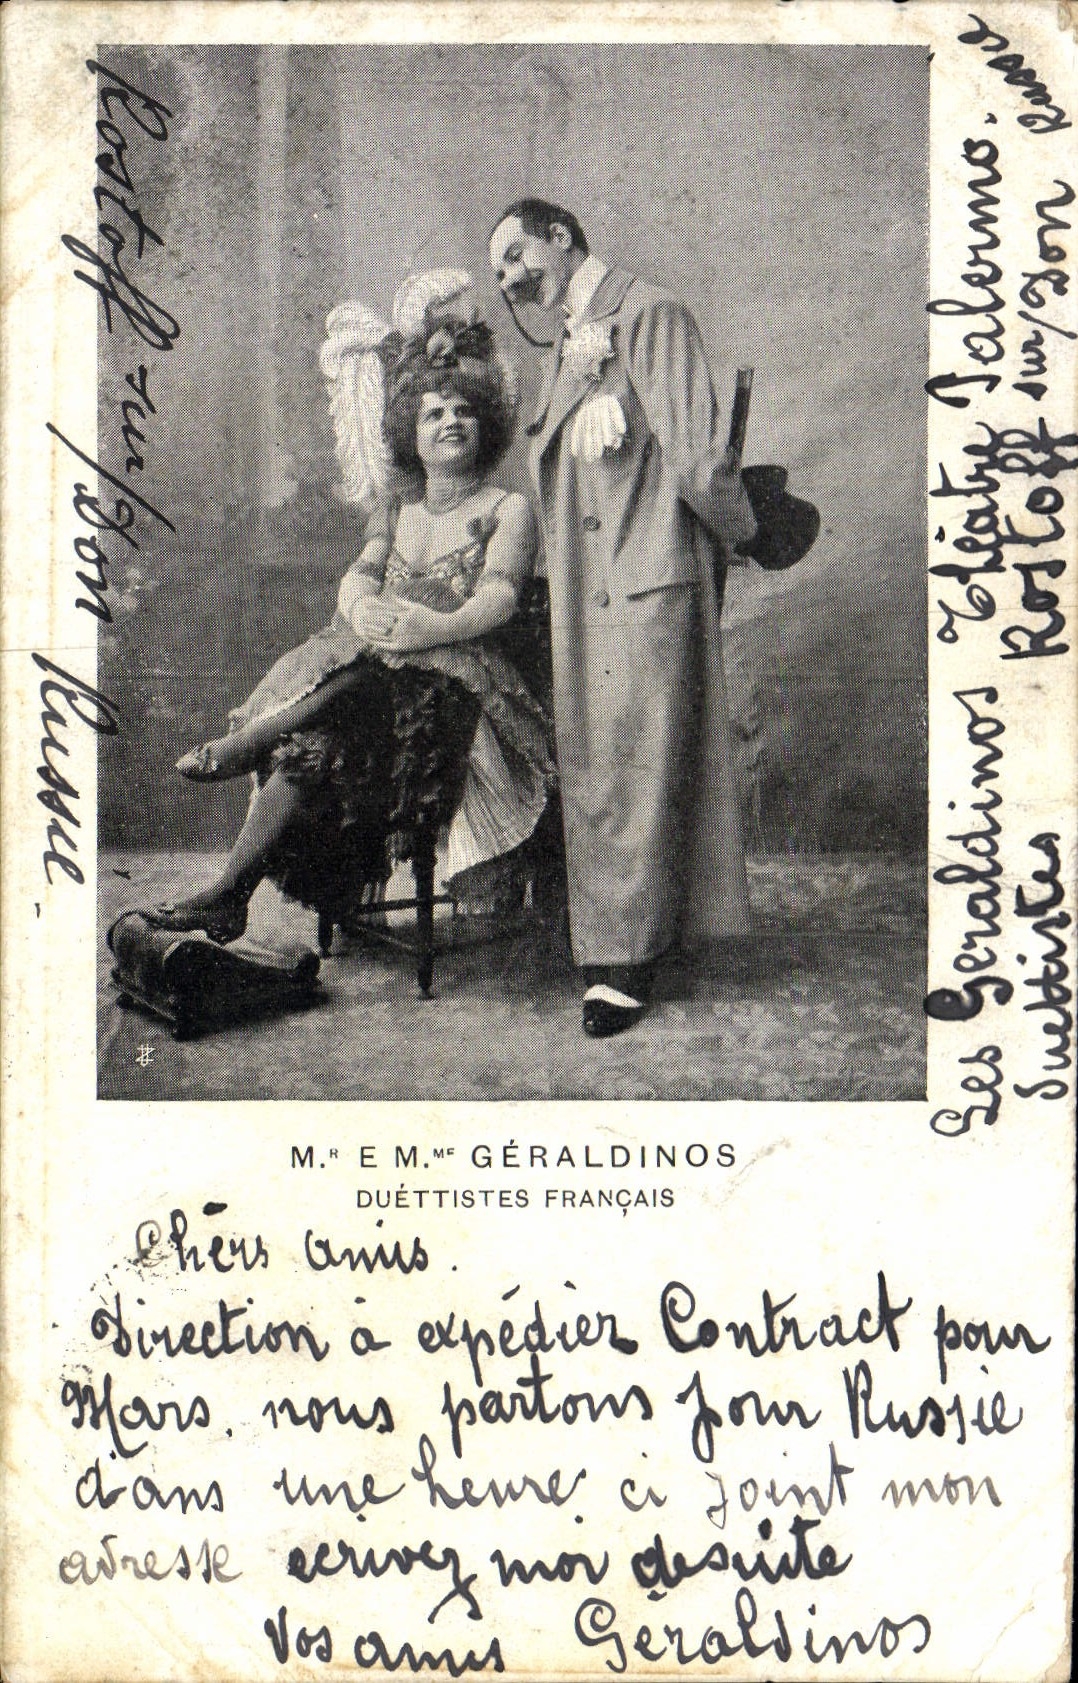 Rostoff sur/Don Russie
Les Geraldinos Théatre Palermo.
Duettistes Rostoff sur/Don Russie
M.R E M.ME GÉRALDINOS
DUÉTTISTES FRANÇAIS
Chērs amis.
Direction à expédièr Contract pour
Mars, nous partons pour Russie
d'ans une heure ci joint mon
adresse ecrivez moi desuite
Vos amis Géraldinos